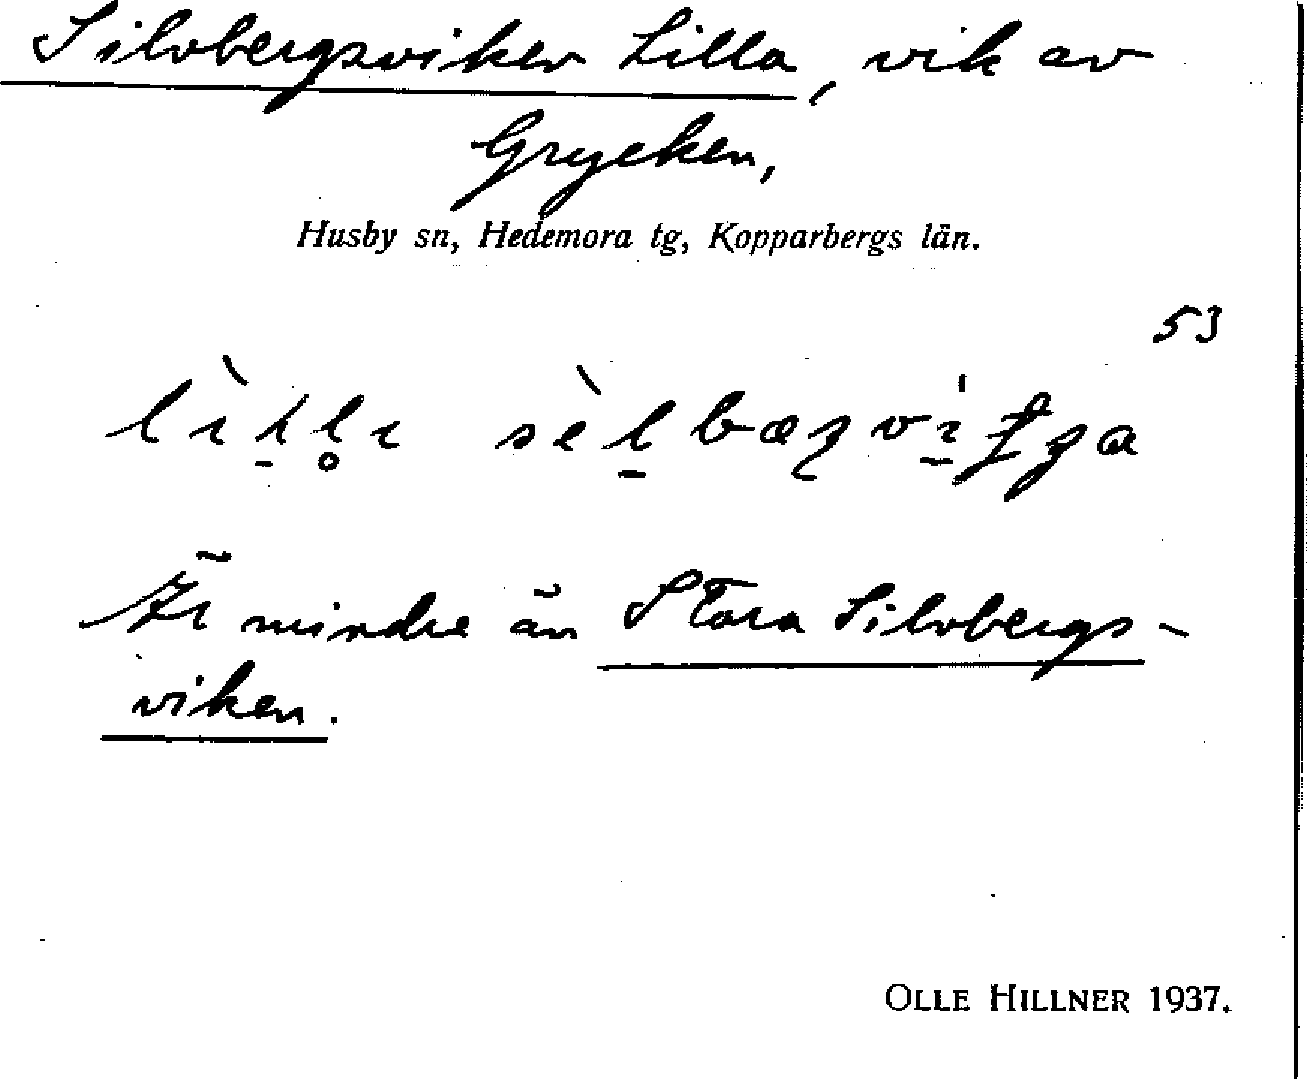 Silvbergsviken Lilla, vik av
Grycken,
Husby sn, Hedemora tg, Kopparbergs län.
53
Är mindre än Stora Silvbergs-
viken.
OLLE HILLNER 1937.